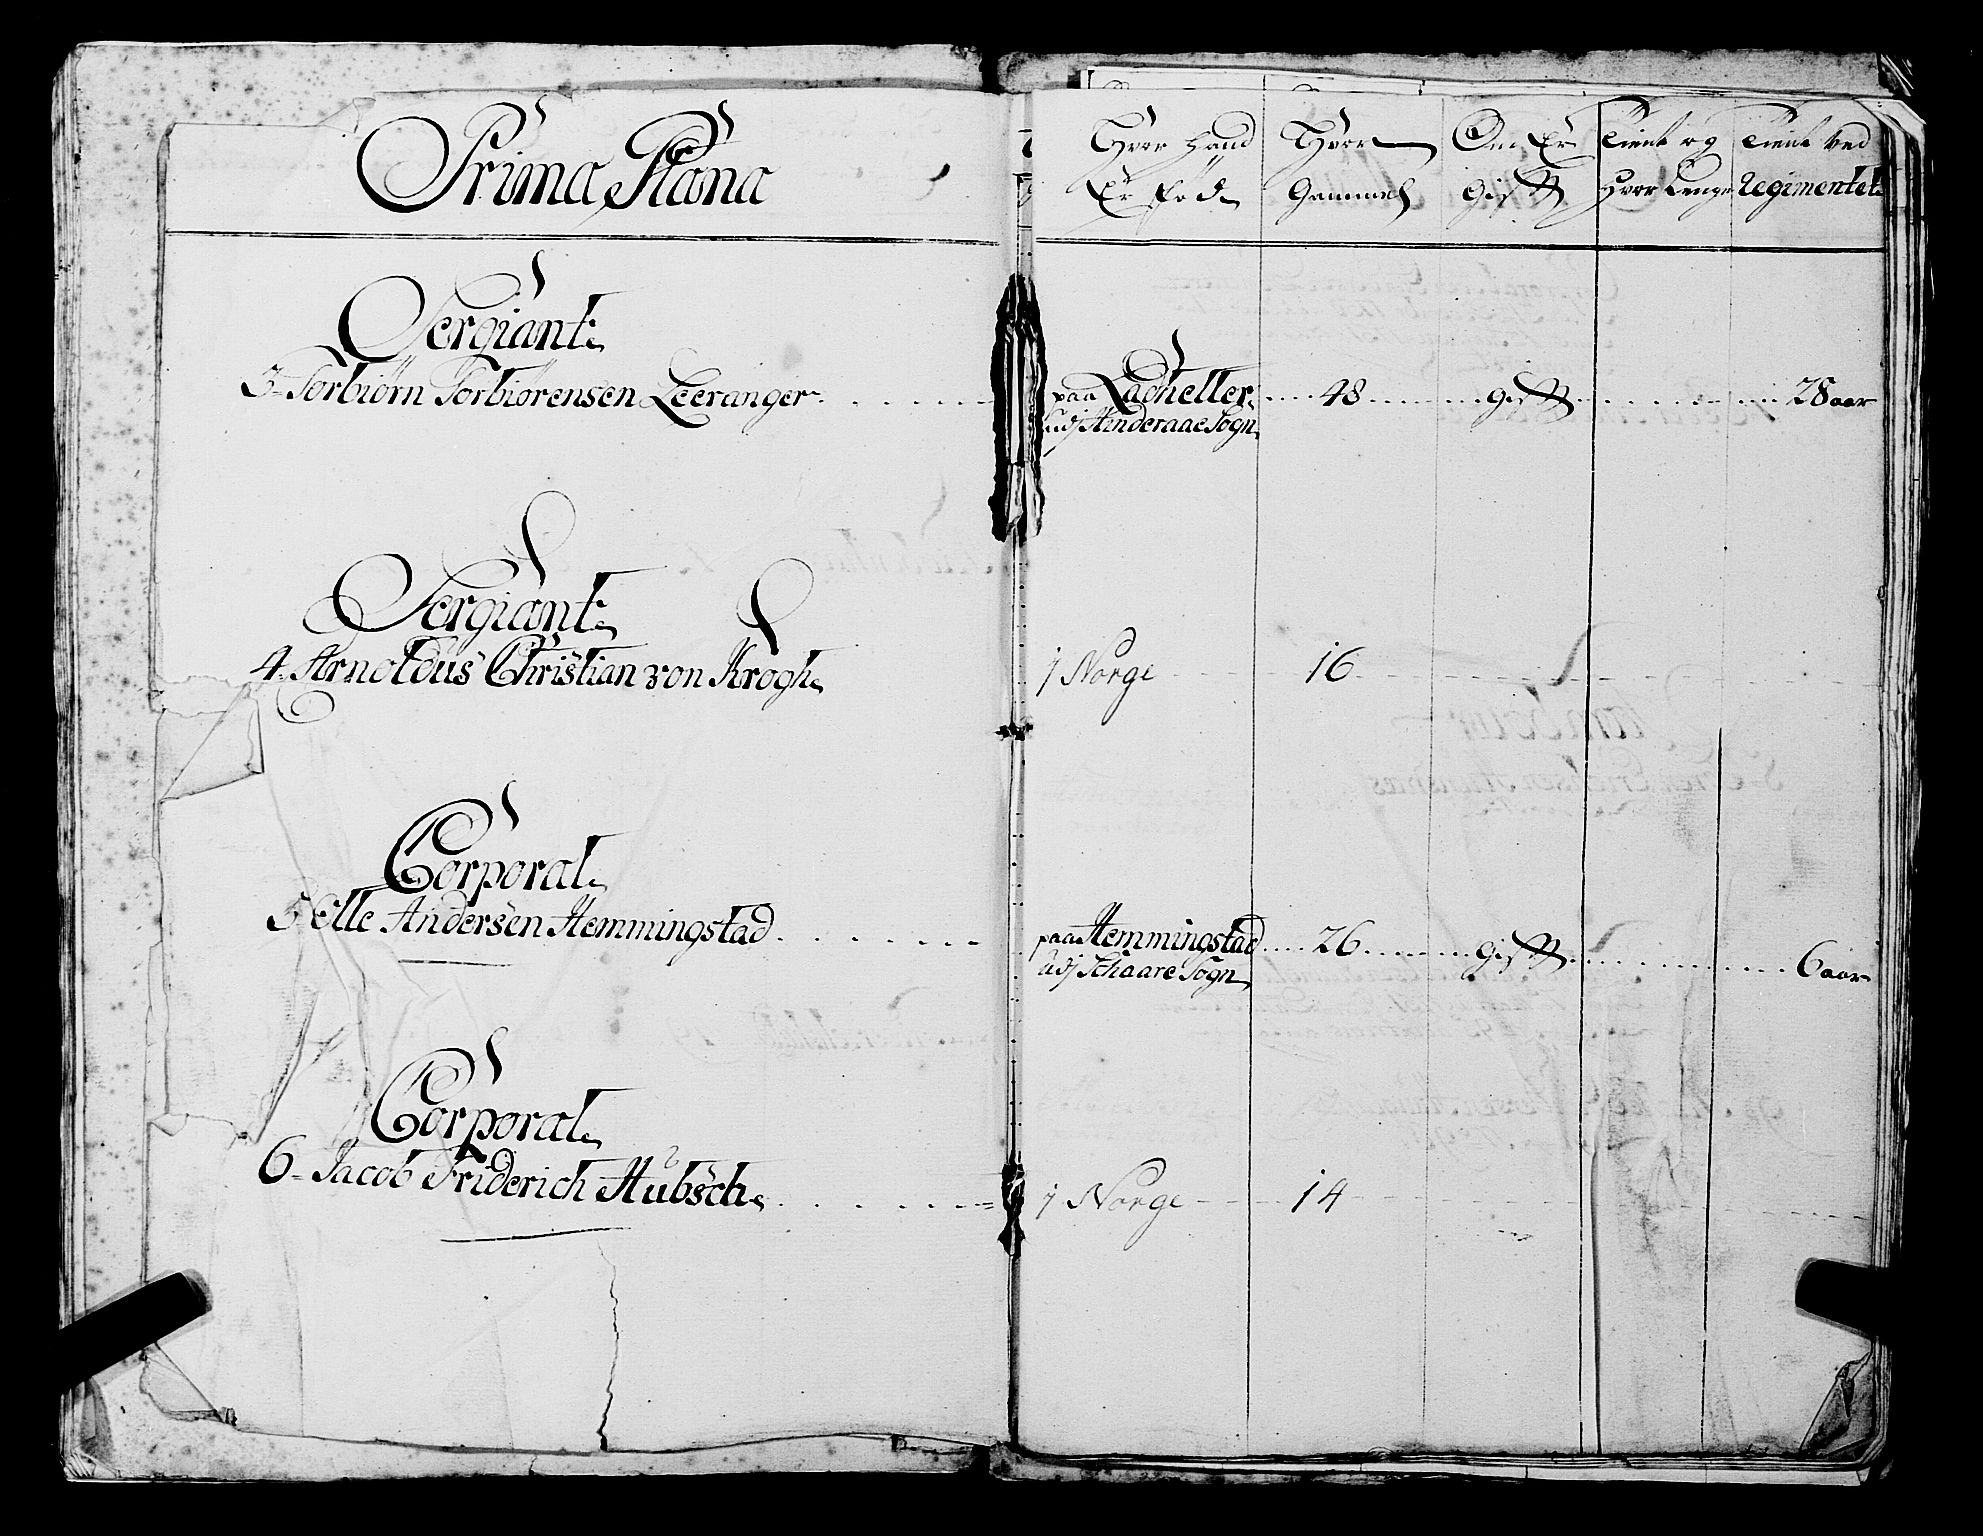 Prima Plana
Hvor hand Er föd
Hvor Gammel
Om Er Gift
Tient og Hvor Lenge
Tient ved Regimentet
Sergiant
3 Torbiörn Torbiörensen Leeranger
paa Ladheller 48 gift 28 aar
udj Hinderaae Sogn
Sergiant
4. Arnoldüs Christian von Krogh
j Norge 16
Corporal
5 Elle Andersen Hemmingstad
paa Hemmingstad 26 gift 6 aar
udj Schaare Sogn
Corporal
6 Jacob Friderich Hübsch
j Norge 14